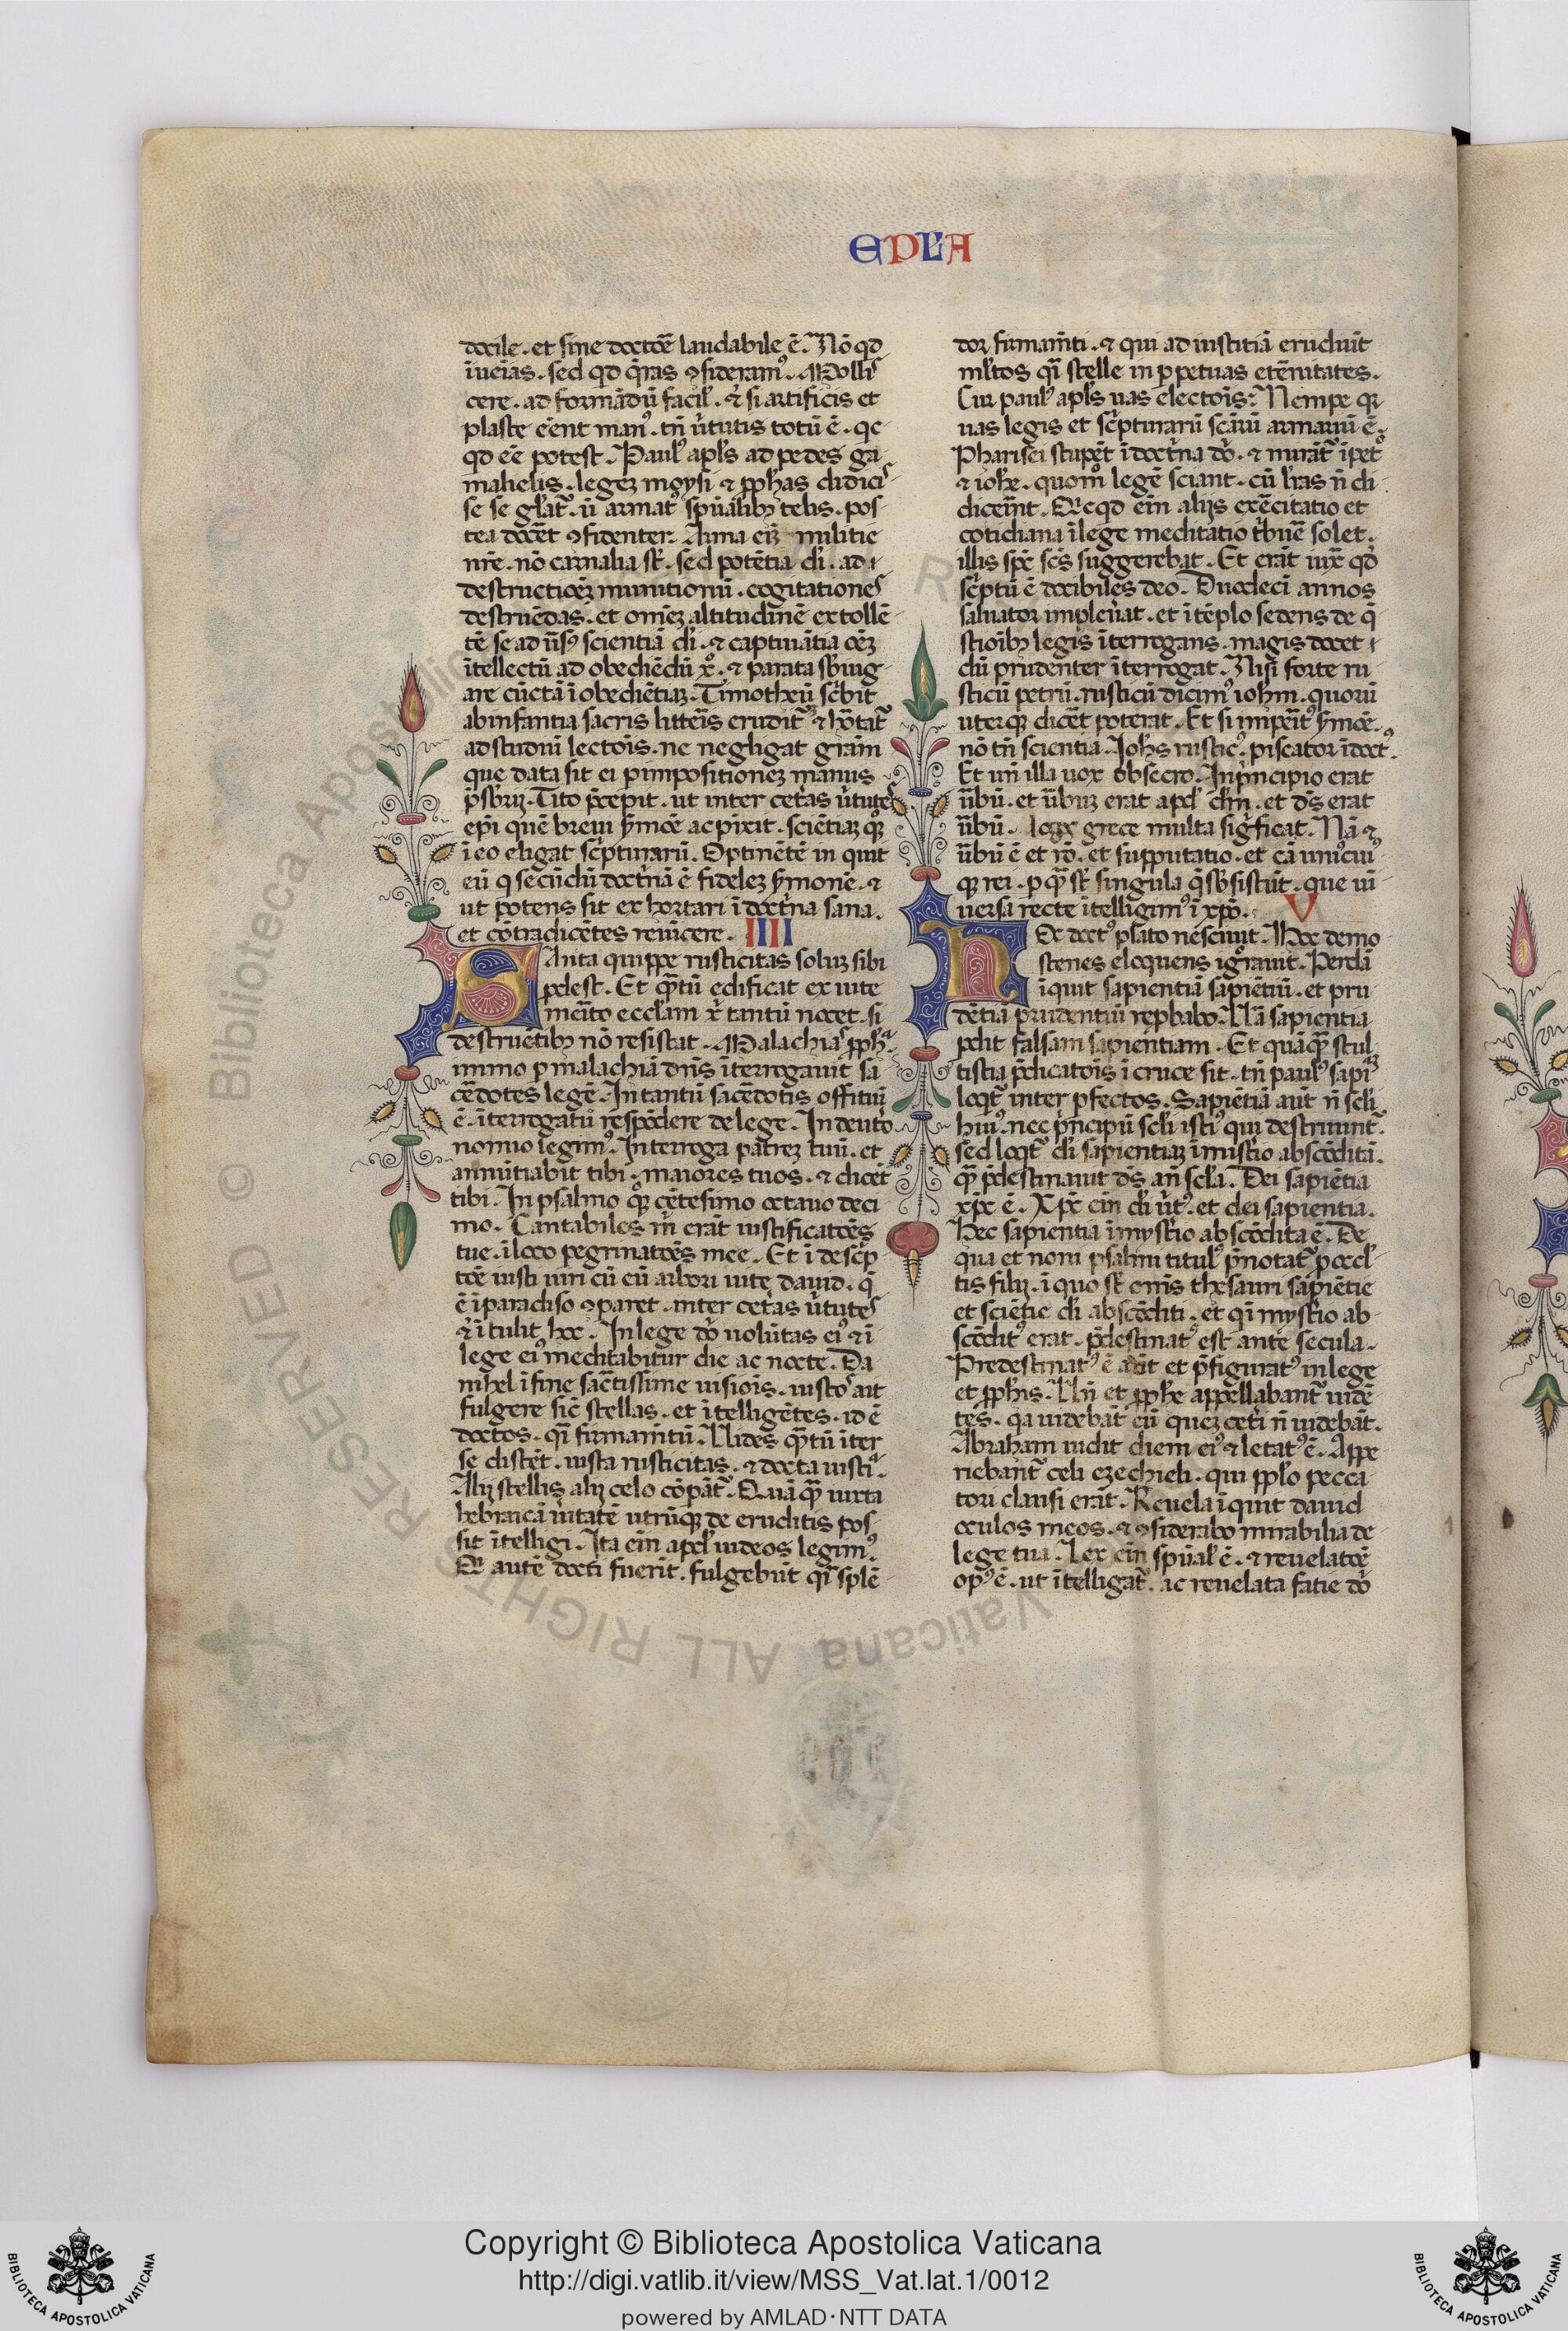 EPLA
docile. et sine doctoē laudabile ē. Nō qd
īueias. sed qd q̄ras ꝯsideramꝰ. Mollis
cere. ad formādū facil'. & si artificis et
plaste eēnt manꝰ. tn̄ v̄tutis totū ē. qc
qd eē potest. Paulꝰ apls ad pedes ga
malielis. legeꝫ moysi & ꝓphas didicis
se se gl'at᷑. ū armatꝰ spūalibꝰ telis. pos
tea docēt ꝯfidenter. Arma eī militie
nr̄e. nō carnalia sr̄. sed potētia di. ad
destructioeꝫ munitionū. cogitationes
destruēdas. et omeꝫ altitudinē extollē
tē se ad ūsꝰ scientiā di. & captiuātia oēꝫ
ītellectū ad obediēdū x̊. & parata sbiug
are cūctā īobediētiaꝫ. Timotheū sc̄bit
abinfantia sacris litteīs erudit᷑ & hōtat᷑
ad studiū lectoīs. ne negligat gram
que data sit ei p impositioneꝫ manus
p̄sbrij. Tito p̄cepit. ut inter cetas v̄tutes
epi quē breui s̄mōe ac pīxit. sciētiaꝫ qꝫ
ī eo eligat sc̄pturarū. Optinētē in quit
eū q secūdū doctnā ē fideleꝫ s̄monē. &
ut potens sit ex hortari ī doctna sana.
et cōtradicētes reuīcere. IIII
SAnta quippe rusticitas soluꝫ sibi
ꝓdest. Et qᷓtū edificat ex uite
meīto eccl'am x̄ tantū nocet. si
destruētibꝰ nō resistat. Malachias ꝓphᵃ.
immo p malachiā dn̄s īterrogauit sa
cēdotes legē. Intantū sacēdotis offitiū
ē. īterrogatū respōdere de lege. In deuto
nomio legimꝰ. Interroga patreꝫ tuū. et
annūtiabit tibi. maiores tuos. & dicēt
tibi. In psalmo qꝫ cētesimo octauo deci
mo. Cantabiles m̄ erāt iustificatōes
tue. ī loco pegrinatōes mee. Et ī descp
tōe iusti uiri cū eū arbori uite dauid. q̄
ē ī paradiso ꝯparet. inter cetas v̄tutes
& ī tulit hoc. In lege dō uolūtas eiꝰ & ī
lege eiꝰ meditabitur die ac nocte. Da
nihel ī fine sac̄tissime uisiois. iustos ait
fulgere sic̄ stellas. et ītelligētes. id ē
doctos. qi firmam̄tū. Uides qᷓtū īter
se distēt. iusta rusticitas. & docta iusti.
Alij stellis alij celo cōpāt᷑. Quāqᷓ iuxta
hebraicā ūitatē utrūqꝫ de eruditis pos
sit ītelligi. Ita ein apd' iudeos legimꝰ.
Qi autē docti fuerīt. fulgebūt qi splē
dor firmam̄ti. & qui ad iustitiā erudiūt
ml'tos qi stelle in ppetuas etēnitates.
Cur paulꝰ apls uas electois: Nempe qr
uas legis et sc̄pturarū scārū armariū ē.
Pharisei stupēt ī doctna dō. & mirāt᷑ ī pet
& iohe. quom̊ legē sciant. cū lras n̄ di
dicerīnt. Qicqd ein alijs exēcitatio et
cotidiana ī lege meditatio tbuē solet.
illis sps scs suggerebat. Et erāt iux qd
sc̄ptū ē docibiles deo. Duodeci annos
saluator impleuāt. et ī tēplo sedens de q̄
stioibꝰ legis īterrogans. magis docet
dū prudenter īterrogat. Nisi forte ru
sticū petrū. rusticū dicimꝰ iohm. quorū
uterqꝫ dicēt poterat. Et si impeītꝰ s̄mōe.
nō tn̄ scientia. Johs rusticꝰ. piscator īdoctꝰ.
Et un̄ illa uox obsecro. In p̄ncipio erat
ūbū. et ūbuꝫ erat apd' dm. et ds erat
ūbū. logx grece multa sigficat. Nā &
ūbū ē et rō. et supputatio. et cā unicuiꝰ
qꝫ rei. p qᷓ sr̄ singula q̄ sbsistūt. que ui
uersa recte ītelligimꝰ ī xpō. V
HEc doctꝰ psato nesciuit. Hoc demo
stenes eloquens igrauit. Perdā
īquit sapientiā sapiētiū. et pru
dētiā prudentiū reꝓbabo. Uā sapientia
pdit falsam sapientiam. Et quāqᷓ stul
tistia p̄dicatois ī cruce sit. tn̄ paulꝰ sapiaꝫ
loqt᷑ inter pfectos. Sapiētiā aut n̄ scl'i
huiꝰ. nec p̄ncipū scl'i istiꝰ qui destruunt᷑.
sed loqt᷑ di sapientiaꝫ ī mistio abscōditā.
qᷓ p̄destinauit ds an̄ scl'a. Dei sapiētia
xpc ē. Xpc ein di v̄tꝰ. et dei sapientia.
Hec sapientia ī mystio abscōdita ē. De
qua et noni psalmi titulꝰ p̄notat᷑ p occl'
tis filij. ī quo sr̄ omīs thesauri sapiētie
et sciētie di abscōditi. et qi mystio ab
scōditꝰ erat. p̄destinatꝰ est ante secula.
Predestinatꝰ ē aūt et p̄figuratꝰ in lege
et ꝓphis. Un̄ et ꝓphe appellabant᷑ uidē
tes. qa uidebāt eū queꝫ cetī n̄ uidebāt.
Abraham uidit diem eiꝰ & letatꝰ ē. Appe
riebant᷑ celi ezechieli. qui pplo pecca
tori clausi erāt. Reuela īquit dauid
oculos meos. & ꝯsiderabo mirabilia de
lege tua. Lex ein spūal' ē. & reuelatōe
opꝰ ē. ut ītelligat᷑. ac reuelata fatie dō
Copyright © Biblioteca Apostolica Vaticana
http://digi.vatlib.it/view/MSS_Vat.lat.1/0012
powered by AMLAD·NTT DATA
BIBLIOTECA APOSTOLICA VATICANA
BIBLIOTECA APOSTOLICA VATICANA